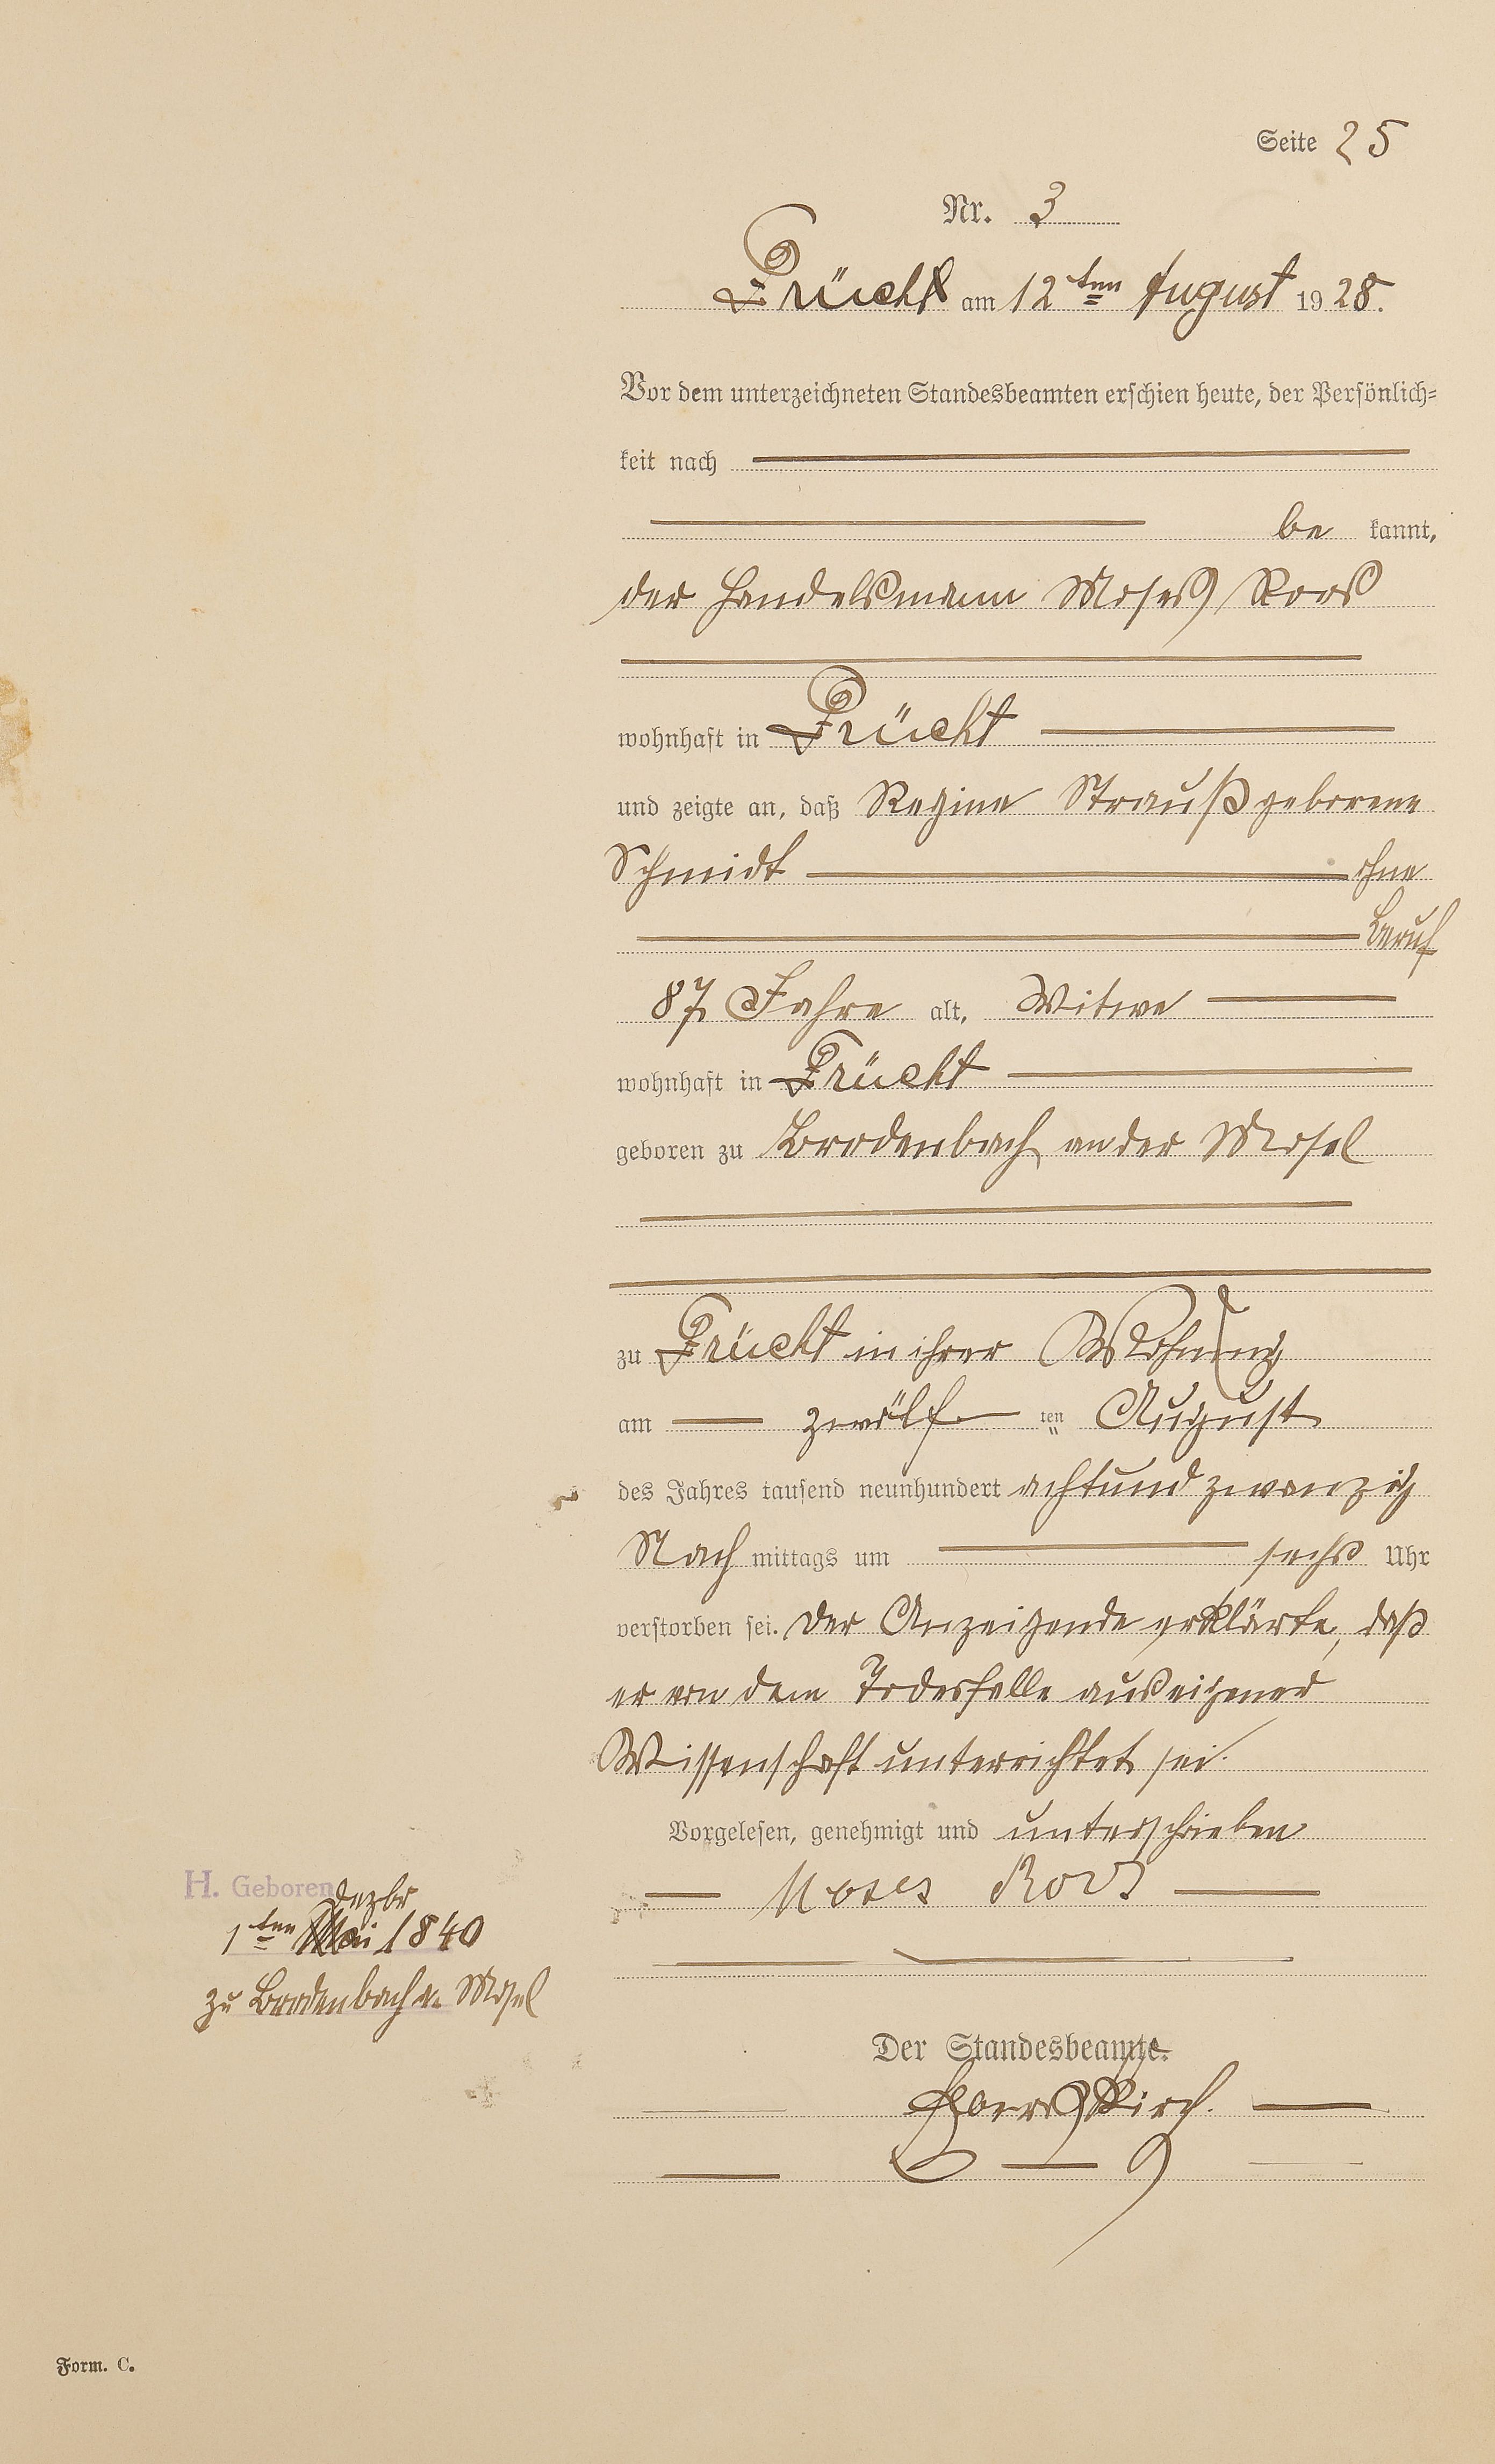 Seite 25
Nr. 3
Frücht am 12ten August 1928.
Vor dem unterzeichneten Standesbeamten erschien heute, der Persönlich=
keit nach
be kannt,
der Handelsmann Moses Roos
wohnhaft in Frücht
und zeigte an, daß Regine Strauß geborene
Schmidt ohne
Beruf
87 Jahre alt, Witwe
wohnhaft in Frücht
geboren zu Brodenbach an der Mosel
zu Frücht in ihrer Wohnung
am zwölf ten August
des Jahres tausend neunhundert achtundzwanzig
Nach mittags um sechs Uhr
verstorben sei. Der Anzeigende erklärte, daß
er von dem Todesfalle aus eigener
Wissenschaft unterrichtet sei.
Vorgelesen, genehmigt und unterschrieben
Moses Roos
H. Geboren
Dezbr
1ten Mai 1840
zu Brodenbach a. Mosel
Der Standesbeamte.
Form. C.